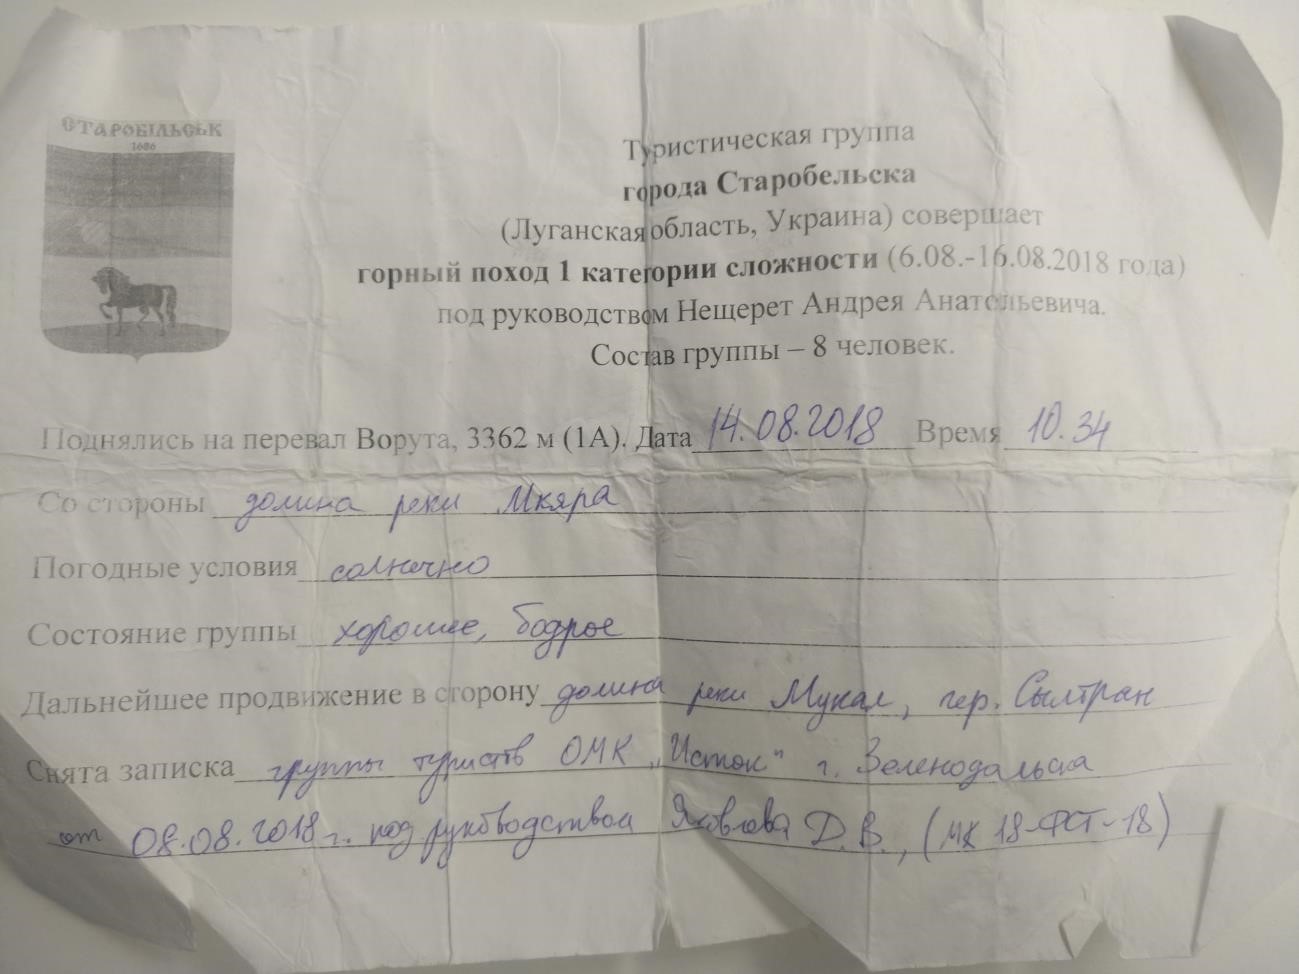 СТАРОБІЛЬСЬК
1686
Туристическая группа
города Старобельска
(Луганская область, Украина) совершает
горный поход 1 категории сложности (6.08.-16.08.2018 года)
под руководством Нещерет Андрея Анатольевича.
Состав группы – 8 человек.
Поднялись на перевал Ворута, 3362 м (1А). Дата 14.08.2018 Время 10.34
Со стороны долина реки Мкяра
Погодные условия солнечно
Состояние группы хорошее, бодрое
Дальнейшее продвижение в сторону долина реки Мукал, пер. Сылтран
Снята записка группы туристов ОМК „Исток" г. Зеленодольска
от 08.08.2018 г. под руководством Яковлева Д.В., (МК 18-ФСТ-18)